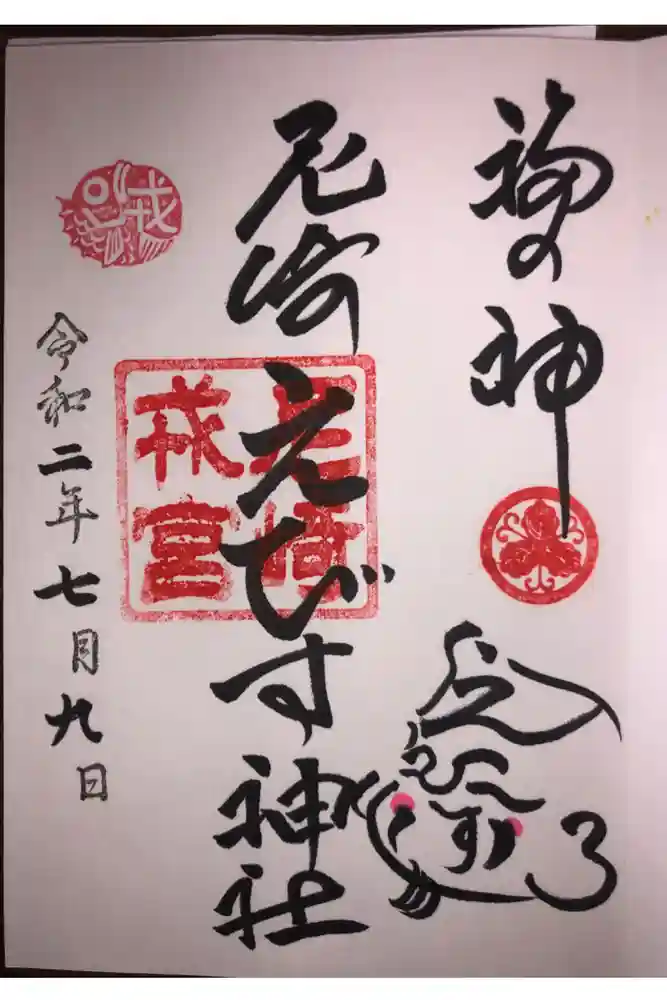 福の神
えびす
尼崎えびす神社
尼崎
戎宮
戎
令和二年七月九日